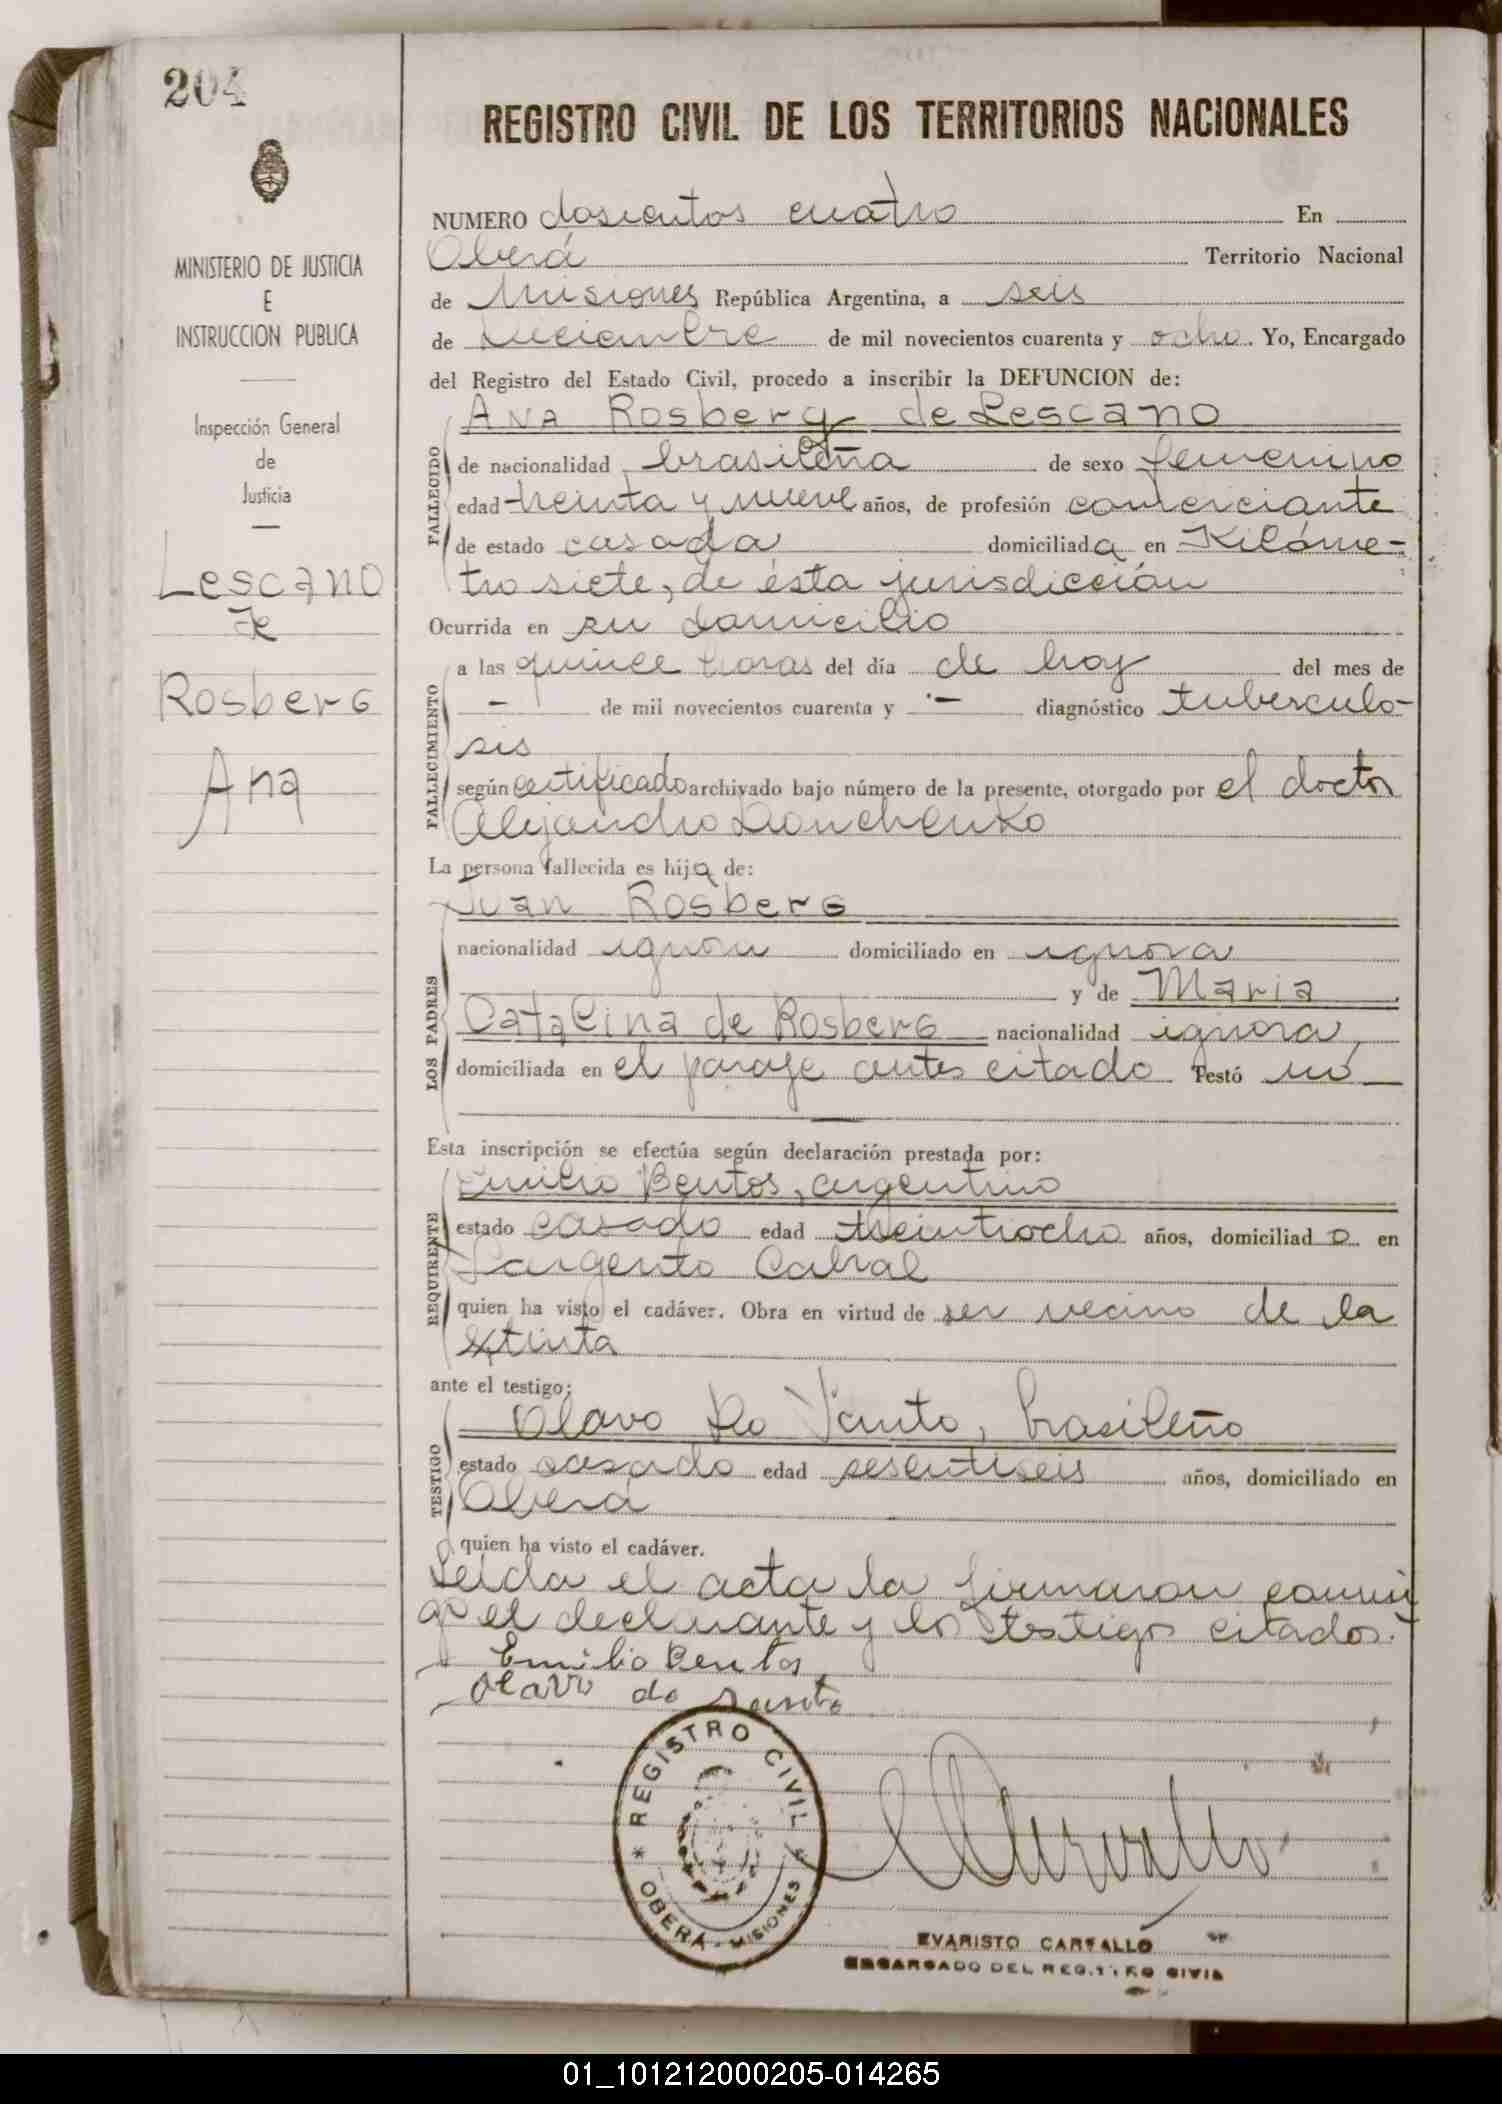 204
REGISTRO CIVIL DE LOS TERRITORIOS NACIONALES
MINISTERIO DE JUSTICIA
E
INSTRUCCION PUBLICA
Inspección General
de
Justicia
Lescano
de
Rosberg
Ana
NUMERO doscientos cuatro En
Oberá Territorio Nacional
de Misiones República Argentina, a seis
de Diciembre de mil novecientos cuarenta y ocho. Yo, Encargado
del Registro del Estado Civil, procedo a inscribir la DEFUNCION de:
Ana Rosberg de Lescano
FALLECIDO
de nacionalidad brasileña de sexo femenino
edad treinta y nueve años, de profesión comerciante
de estado casada domiciliada en Kilóme-
tro siete, de ésta jurisdicción
Ocurrida en su domicilio
FALLECIMIENTO
a las quince horas del día de hoy del mes de
- de mil novecientos cuarenta y - diagnóstico tuberculo-
sis
según certificado archivado bajo número de la presente, otorgado por el doctor
Alejandro
La persona fallecida es hija de:
LOS PADRES
Juan Rosberg
nacionalidad ignora domiciliado en ignora
y de Maria
Catalina de Rosberg nacionalidad ignora,
domiciliada en el paraje antes citado Testó no
Esta inscripción se efectúa según declaración prestada por:
REQUIRENTE
Emilio Bentos, argentino
estado casado edad treintiocho años, domiciliado en
Sargento Cabral
quien ha visto el cadáver. Obra en virtud de ser vecino de la
extinta
ante el testigo:
TESTIGO
Olavo Do Santo, brasileño
estado casado edad sesentiseis años, domiciliado en
Oberá
quien ha visto el cadáver.
Leída el acta la firmaron conmi
go el declarante y los testigos citados.-
Emilio Bentos
Olavo do Santo
REGISTRO CIVIL
OBERÁ - MISIONES
Carvallo
EVARISTO CARVALLO
ENCARGADO DEL REGISTRO CIVIL
01_101212000205-014265